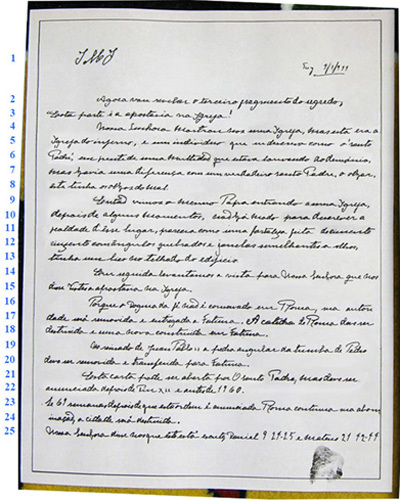 1 JMJ Tuy 1/4/1944
2 Agora vou revelar o terceiro fragmento do segredo;
3 Esta parte é a apostasia na Igreja!
4 Nossa Senhora mostrou-nos uma Igreja, mas esta era a
5 Igreja do inferno, e um individuo que eu descrevo como o 'santo
6 Padre', em frente de uma multidaõ que estava louvando ao demonio,
7 mas havia uma diferença com um verdadeiro santo Padre, o olhar,
8 este tinha o olhar do mal.
9 vimos o mesmo Papa entrando a uma Igreja,
10 depois de alguns momentos, modo para descrever a
11 fealdade d'esse lugar, parecia como uma fortaleza feita de cimento
12 cinzento com angulos quebrados e janelas semelhantes a olhos,
13 tinha um bico no telhado do edificio.
14 Em seguida levantamos a vista para Nossa Senhora que nos
15 a apostasia na Igreja.
16 Porque o Dogma da fé naõ é conservado em Roma, sua autori
17 dade sera removida e entregada a Fatima. A catedral de Roma deve ser
18 destruida e uma nova construida em Fatima.
19 No reinado de Juan Pablo II a pedra angular da tumba de Pedro
20 deve ser removida e transferida para Fatima.
21 Esta carta pode ser aberta por O santo Padre, mas deve ser
22 anunciada depois de Pio XII e antes de 1960.
23 Se 69 semanas depois de que esta ordem é anunciada, Roma continua sua abomi
24 naçaõ, a cidade será destruida.
25 Nossa Senhora disse-nos que isto está escrito, Daniel 9 24-25 e Mateus 21 42-44